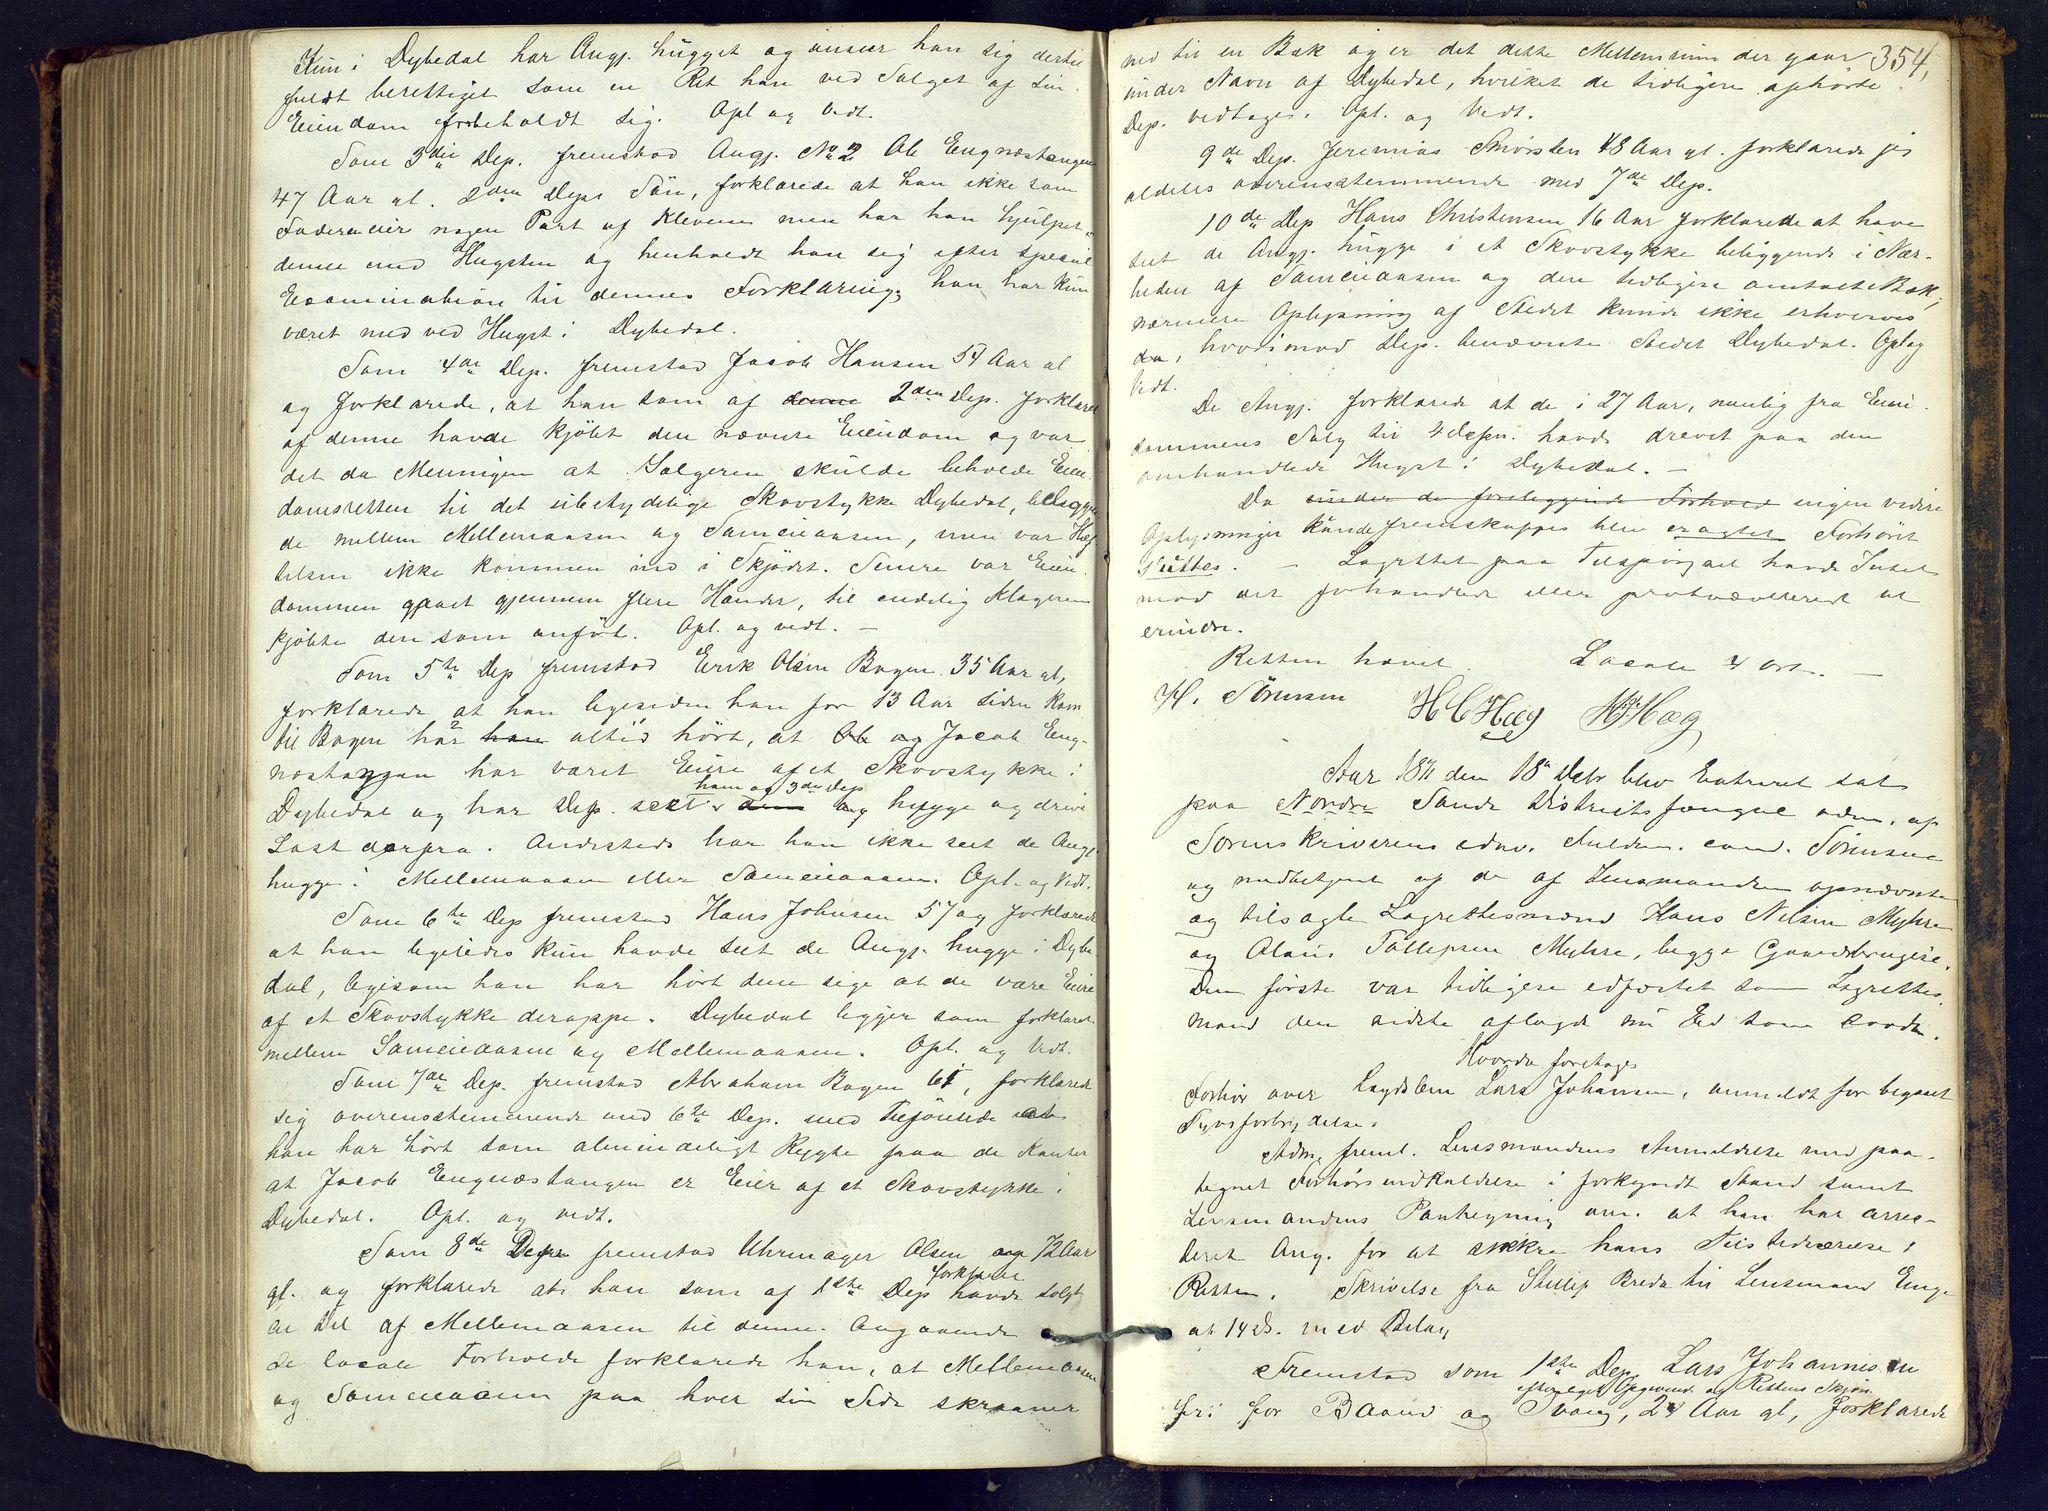 Kun i Dybedal har Angj. hugget og anser han sig dertil
fuldt berettiget som en Ret han ved Salget af sin
Eiendom forbeholdt sig. Opl og Vedt.
Som 3die Dep. fremstod Angj. No 2 Ole Engnæstangen
47 Aar gl. 2den Deps Søn, forklarede at han ikke som
Faderen eier nogen Part af Kleven men har han hjulpet
denne med Hugsten og henholdt han sig efter speciel
Examination til dennes Forklaring; han har kun
været med ved Hugst i Dybedal.
Som 4de Dep. fremstod Jacob Hansen 54 Aar gl
og forklarede, at han som af denne 2den Dep. forklaret
af denne havde kjøbt den nævnte Eiendom og var
det da Meningen at Sælgeren skulde beholde Eien-
domsretten til det ubetydelige Skovstykke Dybedal, beliggen
de mellem Mellemaasen og Sameieaasen, men var Hef
telsen ikke kommen ind i Skjødet. Senere var Eien
dommen gaaet gjennem flere Hænder, til endelig Klageren
kjøbte den som anført. Opl. og vedt. –
Som 5te Dep fremstod Erik Olsen Bogen 35 Aar gl,
forklarede at han ligesiden han for 13 Aar siden kom
til Bogen har han altid hørt, at Ole og Jacob Eng-
næstangen har været Eiere af et Skovstykke i
Dybedal og har Dep. seet ham og 3die Dep dem og hugge og drive
Last derfra. Andetsteds har han ikke seet de Angj.
hugge i Mellemaasen eller Sameieaasen. Opl. og Vedt.
Som 6te Dep fremstod Hans Johnsen 57 og forklarede
at han ligeledes kun havde seet de Angj. hugge i Dybe-
dal, ligesom han har hørt dem sige at de vare Eiere
af et Skovstykke deroppe. Dybedal ligger som forklaret
mellem Sameieaasen og Mellemaasen. Opl. og Vedt.
Som 7de Dep. fremstod Abraham Bogen 61, forklarede
sig overensstemmende med 6te Dep. med Tilføiende at
han har hørt som almindeligt Rygte paa de Kanter
at Jacob Engnæstangen er Eier af et Skovstykke i
Dybedal. Opl. og vedt.
Som 8de Dep fremstod Uhrmager Olsen 72 Aar
gl. og forklarede at han som af 1ste Dep forklaret havde solgt
en Del af Mellemaasen til denne. Angaaende
de locale Forholde forklarede han, at Mellemaasen
og Sameieaasen paa hver sin Side skraaner
354,
ned til en Bæk og er det dette Mellemrum der gaar
under Navn af Dybedal, hvilket de tidligere aphørte
Dep. vedtages. Opl. og Vedt.
9de Dep. Jeremias 48 Aar gl. forklarede sig
aldeles overensstemmende med 7de Dep.
10de Dep Hans Christensen 16 Aar forklarede at have
seet de Angj. hugge i et Skovstykke beliggende i Nær-
heden af Sameieaasen og den tidligere omtalte Bæk;
nærmere Oplysning af Stedet kunde ikke erhverves
da, hvorimod Dep. benævnte Stedet Dybedal. Opl og
Vedt.
De Angj. forklarede at de i 27 Aar, nemlig fra Eien-
dommens Salg til 4 Depn. havde drevet paa den
omhandlede Hugst i Dybedal. –
Da under de foreliggende Forhold ingen videre
Oplysninger kunde fremskaffes blev eragtet Forhøret
sluttes. – Lagrettet paa Tilspørgsel havde Intet
mod det forhandlede eller protocollerede at
erindre.
Retten hævet. Locale 4 Ort. –
H. Sørensen H C Hæg H Hæg
Aar 1871 den 18de Debr blev Extraret sat
paa Nordre Sande Distriktsfængsel adm. af
Sorenskriverens edsv. Fuldm. cand. Sørensen
og medbetjent af de af Lensmanden opnævnte
og tilsagte Lagrettesmænd Hans Nilsen Myhre
og Olaus Tollefsen Myhre, begge Gaardbrugere.
Den første var tidligere edfæstet som Lagrettes-
mand den sidste aflagde nu Ed som saadan.
Hvorda foretages
Forhør over Lægdslem Lars Johansen, anmeldt for begaaet
Tyvsforbrydelse.
Adm. freml. Lensmandens Anmeldelse med paa-
tegnet Forhørsindkaldelse i forkyndt Stand samt
Lensmandens Paategning om at han har arres-
teret Ang. for at sikkre hans Tilstedeværelse i
Retten. Skrivelse fra Phillip Breda til Lensmand Enge
at 14 ds. med Bilag
Fremstod som 1ste Dep. Lars Johannesen
fri for Baand og Tvang, efter eget Opgivende og Rettens Skjøn 24 Aar gl, forklarede